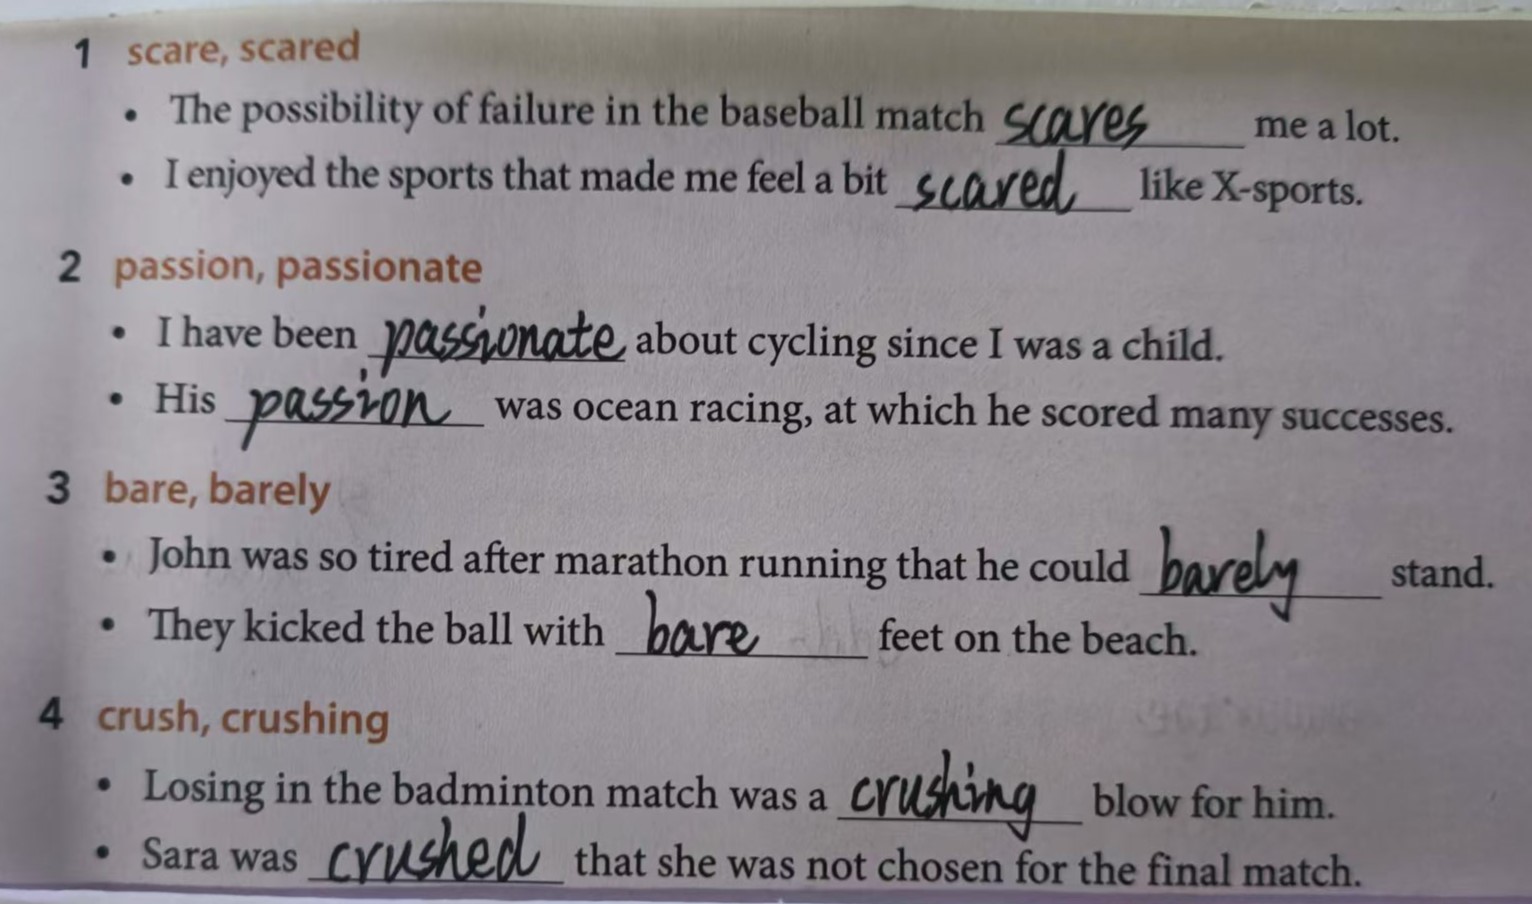 1 scare, scared
• The possibility of failure in the baseball match scares me a lot.
• I enjoyed the sports that made me feel a bit scared like X-sports.
2 passion, passionate
• I have been passionate about cycling since I was a child.
• His passion was ocean racing, at which he scored many successes.
3 bare, barely
• John was so tired after marathon running that he could barely stand.
• They kicked the ball with bare feet on the beach.
4 crush, crushing
• Losing in the badminton match was a crushing blow for him.
• Sara was crushed that she was not chosen for the final match.